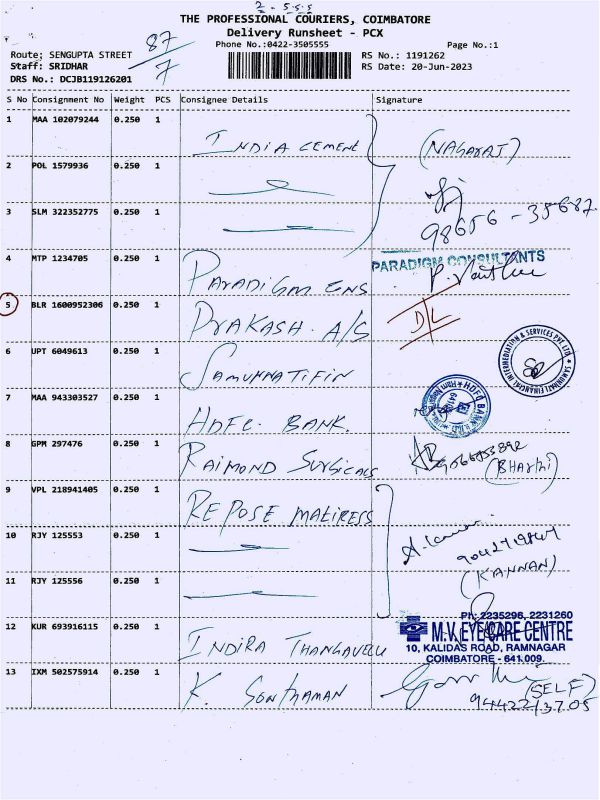 2-555
THE PROFESSIONAL COURIERS, COIMBATORE
Delivery Runsheet - PCX
Phone No.:0422-3505555
Page No.:1
87/7
Route; SENGUPTA STREET
RS No.: 1191262
Staff: SRIDHAR
RS Date: 20-Jun-2023
DRS No.: DCJB119126201
S No Consignment No Weight PCS Consignee Details Signature
1 MAA 102079244 0.250 1 INDIA CEMENT (NAGARAJ)
2 POL 1579936 0.250 1
3 SLM 322352775 0.250 1 98656-35687
4 MTP 1234705 0.250 1 PARADIGM ENS PARADIGM CONSULTANTS
5 BLR 1600952306 0.250 1 PRAKASH. A/S D/L
6 UPT 6049613 0.250 1 SAMUNNATIFIN
7 MAA 943303527 0.250 1 HDFC. BANK. HDFC BANK
8 GPM 297476 0.250 1 RAIMOND SURGICALS
9 VPL 218941405 0.250 1 REPOSE MATIRESS
10 RJY 125553 0.250 1
11 RJY 125556 0.250 1 (KANNAN)
Ph: 2235296, 2231260
12 KUR 693916115 0.250 1 INDIRA THANGAVELU M.V. EYE CARE CENTRE
10, KALIDAS ROAD, RAMNAGAR
COIMBATORE - 641 009.
13 IXM 502575914 0.250 1 K. (SELF)